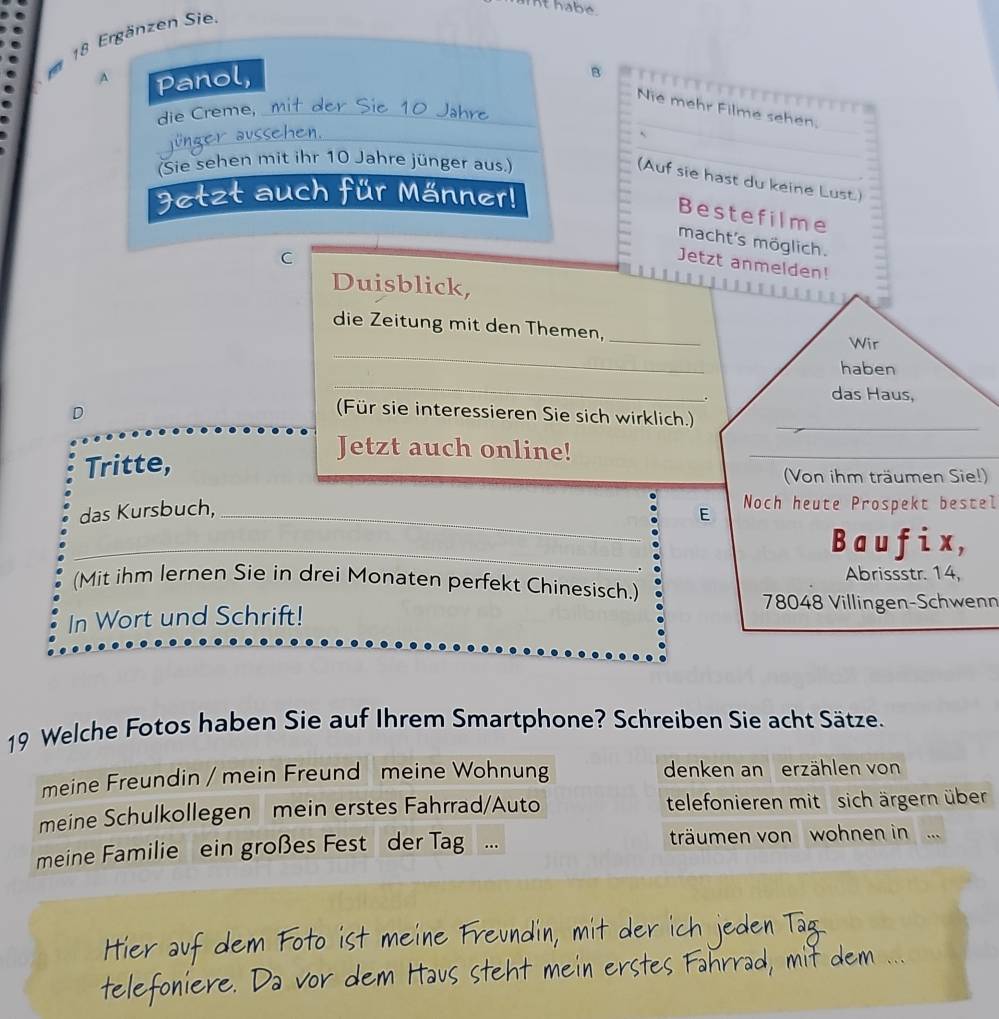 habe.
18 Ergänzen Sie.
A
Panol,
die Creme, mit der Sie 10 Jahre
jünger aussehen.
(Sie sehen mit ihr 10 Jahre jünger aus.)
Jetzt auch für Männer!
B
Nie mehr Filme sehen,
(Auf sie hast du keine Lust.)
Bestefilme
macht's möglich.
Jetzt anmelden!
C
Duisblick,
die Zeitung mit den Themen,
(Für sie interessieren Sie sich wirklich.)
Jetzt auch online!
D
Tritte,
das Kursbuch,
(Mit ihm lernen Sie in drei Monaten perfekt Chinesisch.)
In Wort und Schrift!
Wir
haben
das Haus,
(Von ihm träumen Sie!)
E
Noch heute Prospekt bestel
Baufix,
Abrissstr. 14,
78048 Villingen-Schwenn
19 Welche Fotos haben Sie auf Ihrem Smartphone? Schreiben Sie acht Sätze.
meine Freundin / mein Freund meine Wohnung denken an erzählen von
meine Schulkollegen mein erstes Fahrrad/Auto telefonieren mit sich ärgern über
meine Familie ein großes Fest der Tag ... träumen von wohnen in ...
Hier auf dem Foto ist meine Freundin, mit der ich jeden Tag
telefoniere. Da vor dem Haus steht mein erstes Fahrrad, mit dem ...